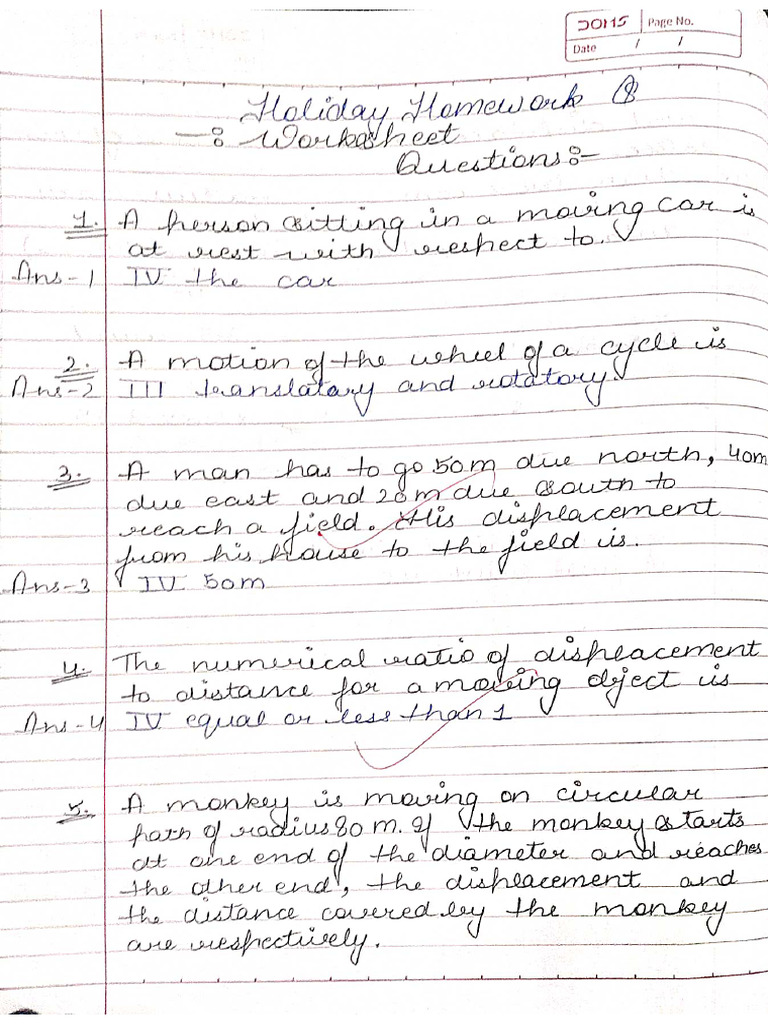 DOMS Page No.
Date / /
Holiday Homework
-: Worksheet
Questions:-
1. A person sitting in a moving car is
at rest with respect to.
Ans-1 IV the car
2. A motion of the wheel of a cycle is
Ans-2 III translatary and rotatory.
3. A man has to go 50m due north, 40m
due east and 20m due south to
reach a field. His displacement
from his house to the field is.
Ans-3 IV 50m
4. The numerical ratio of displacement
to distance for a moving object is
Ans-4 IV equal or less than 1
5. A monkey is moving on circular
path of radius 80 m. If the monkey starts
at one end of the diameter and reaches
the other end, the displacement and
the distance covered by the monkey
are respectively.